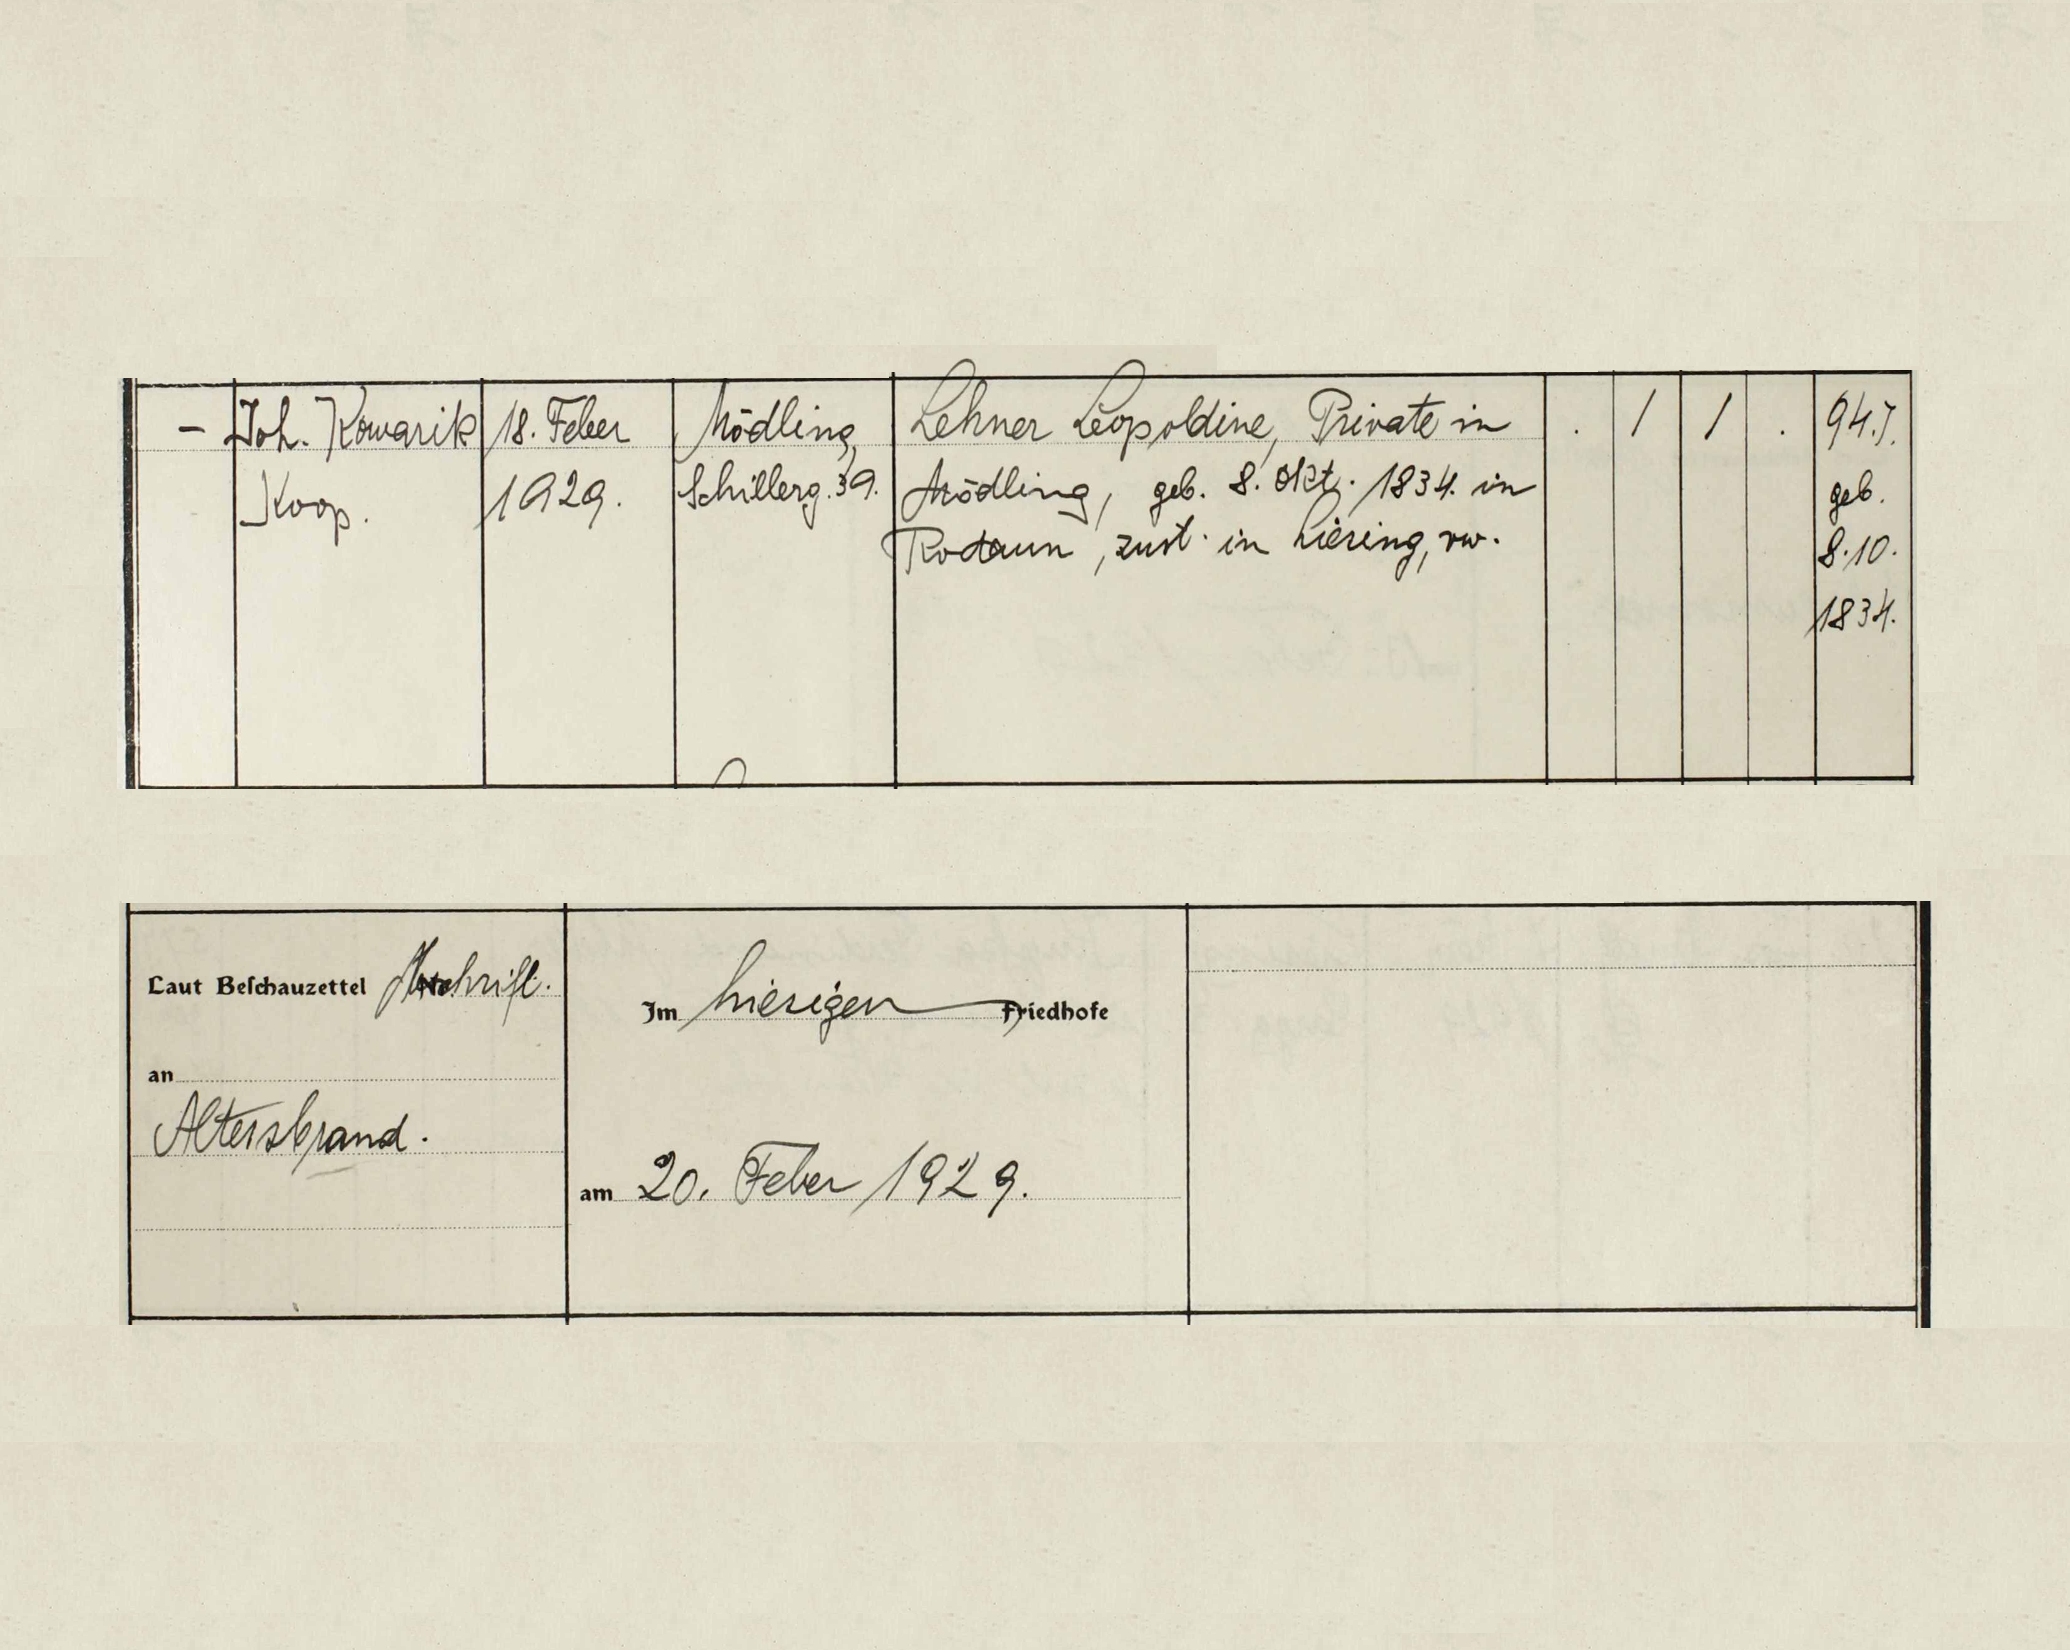 – Joh. Kowarik 18. Feber Mödling, Lehner Leopoldine, Private in . 1 1 . 94.J.
Koop. 1929. Schillerg. 39. Mödling, geb. 8. Okt. 1834. in geb.
Rodaun, zust. in Liesing, vw. 8.10.
1834.
Laut Beschauzettel
Im hiesigen Friedhofe
an
Altersbrand.
am 20. Feber 1929.